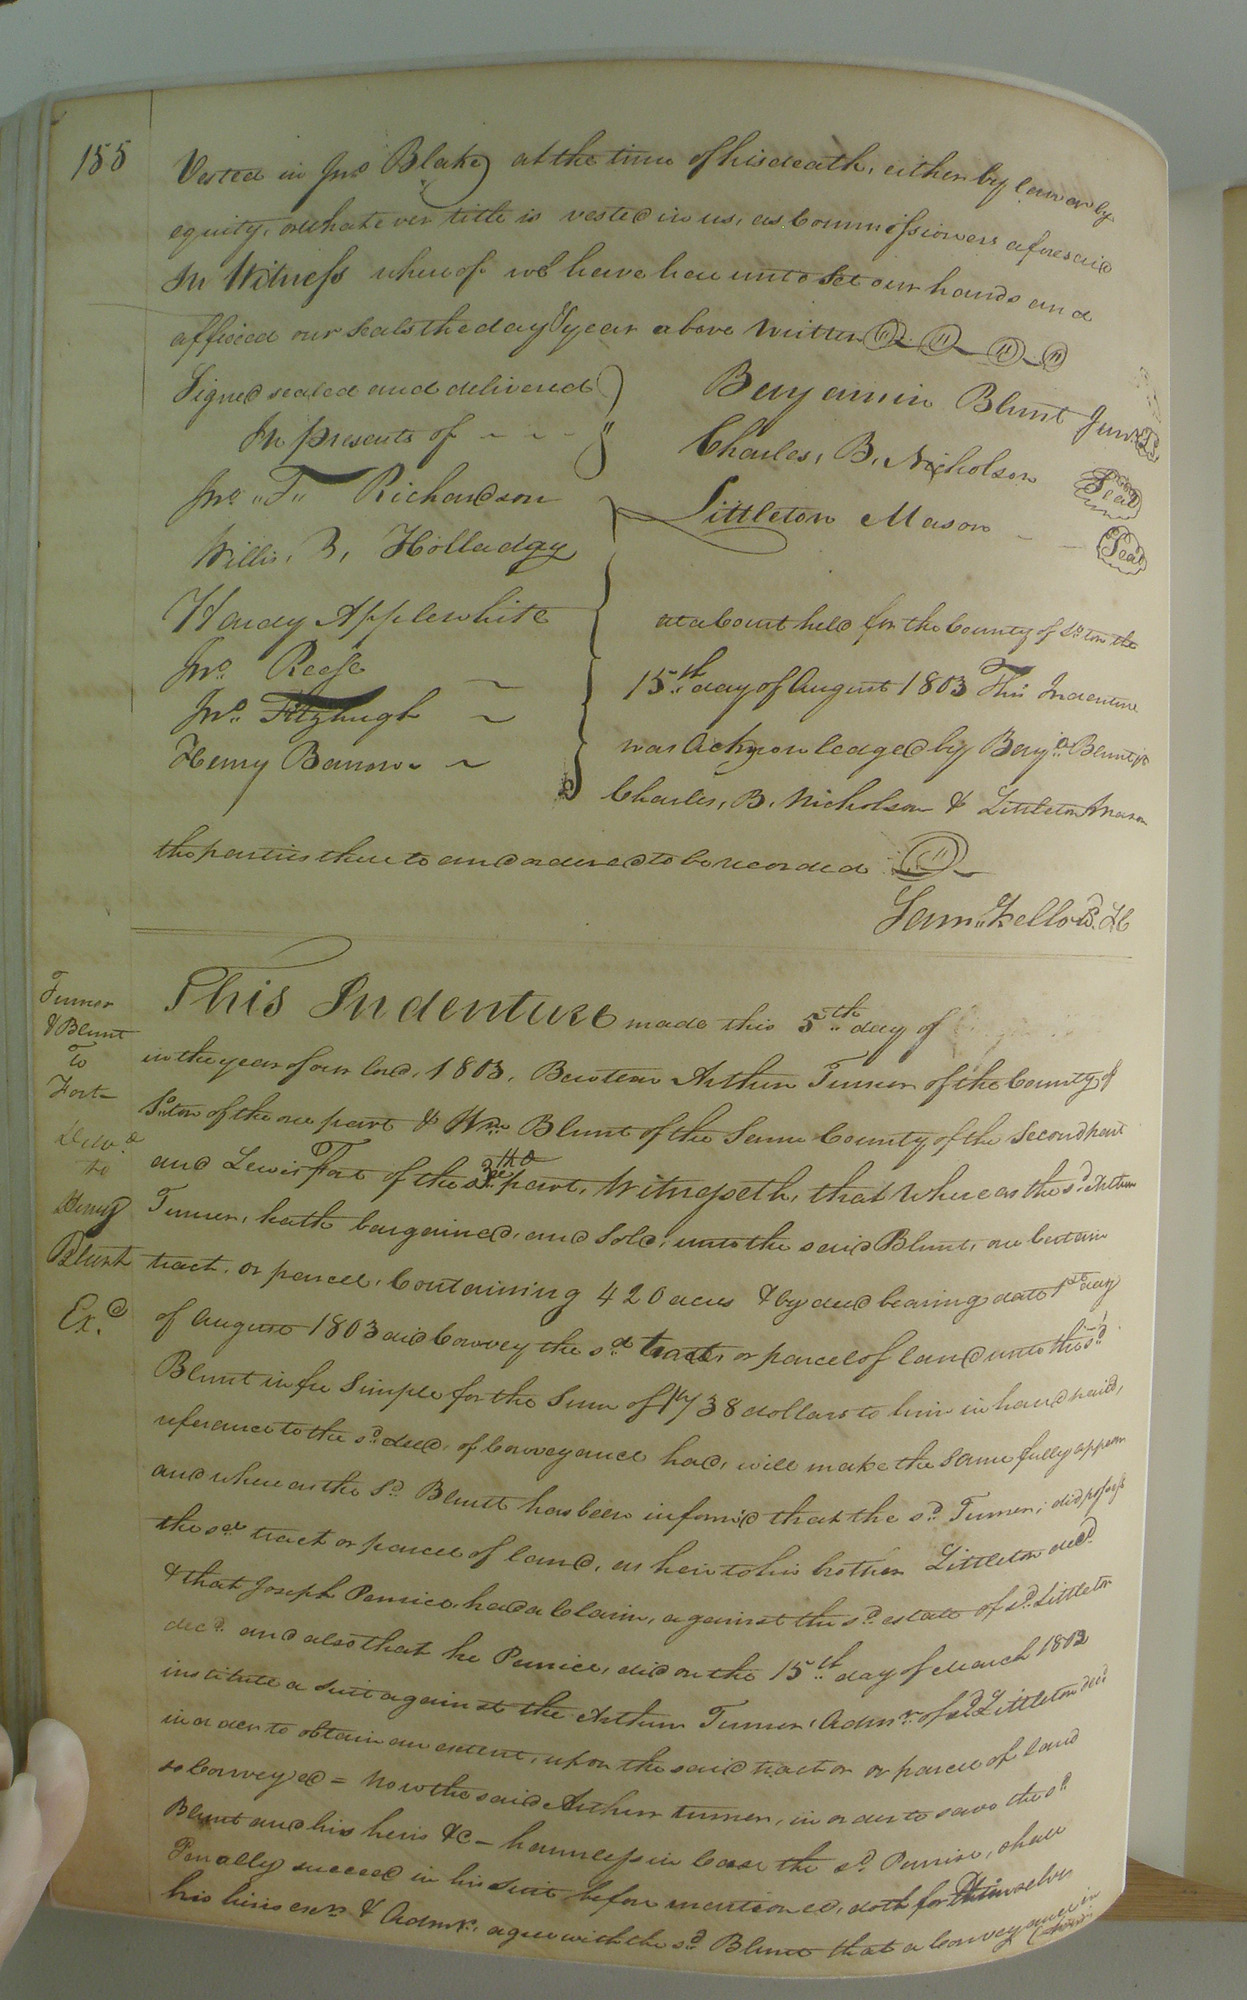 155
Vested in Jno Blake at the time of his death, either by law or by
equity, or whatever title is vested in us, as Commissioners aforesaid
In Witness whereof we have here unto Set our hands and
affixed our Seals the day & year above Written
Signed sealed and delivered
In presents of - - -
Benjamin Blunt Junr LS.
Charles, B, Nicholson Seal
Littleton Mason - - Seal
Jno "T" Richardson
Willis, B, Holladay
Hardy Applewhite
Jno. Reese
Jno. Fitzhugh
Henry Barrow
at a Court held for the County of So ton the
15th day of August 1803 This Indenture
was Acknowledged by Benja Blunt jr
Charles, B. Nicholson & Littleton Mason
the parties there to and ordered to be recorded
Sam. Kello D. C
Turner
& Blunt
To
Fort
Delvd
to
Henry
Blunt
Ex.d
This Indenture made this 5th day of
in the year of our lord, 1803, Between Arthur Turner of the County of
So ton of the one part & Wm Blunt of the Same County of the Second part
and Lewis Fort of the 3rd part, Witnesseth, that Where as the sd Arthur
Turner, hath bargained, and Sold, unto the said Blunt, one Certain
tract, or parcel, Containing 420 acres & by deed bearing date 1st day
of August 1803 did Convey the sd tract, or parcel of land unto the sd
Blunt in fee Simple for the Sum of 1738 dollars to him in hand paid,
reference to the sd deed, of Conveyance had, will make the Same fully appear
and where as the Sd Blunt has been inform'd that the sd Turner, did possess
the sd tract or parcel of land, as heir to his brother Littleton decd
& that Joseph Pennice, had a Claim, against the sd estate of sd Littleton
decd. and also that he Pennice, did on the 15th day of March 1803
institute a suit against the Arthur Turner, Admr. of sd Littleton decd
in order to obtain an extent, upon the said tract or or parcel of land
so Convey'd = Now the said Arthur turner, in order to save the sd
Blunt and his heirs &c - harmless in Case the sd Pennice, shall
Penally succeed in his suit before mentioned, doth for themselves
his heirs exrs & Admrs. agree with the sd Blunt that a Conveyance in